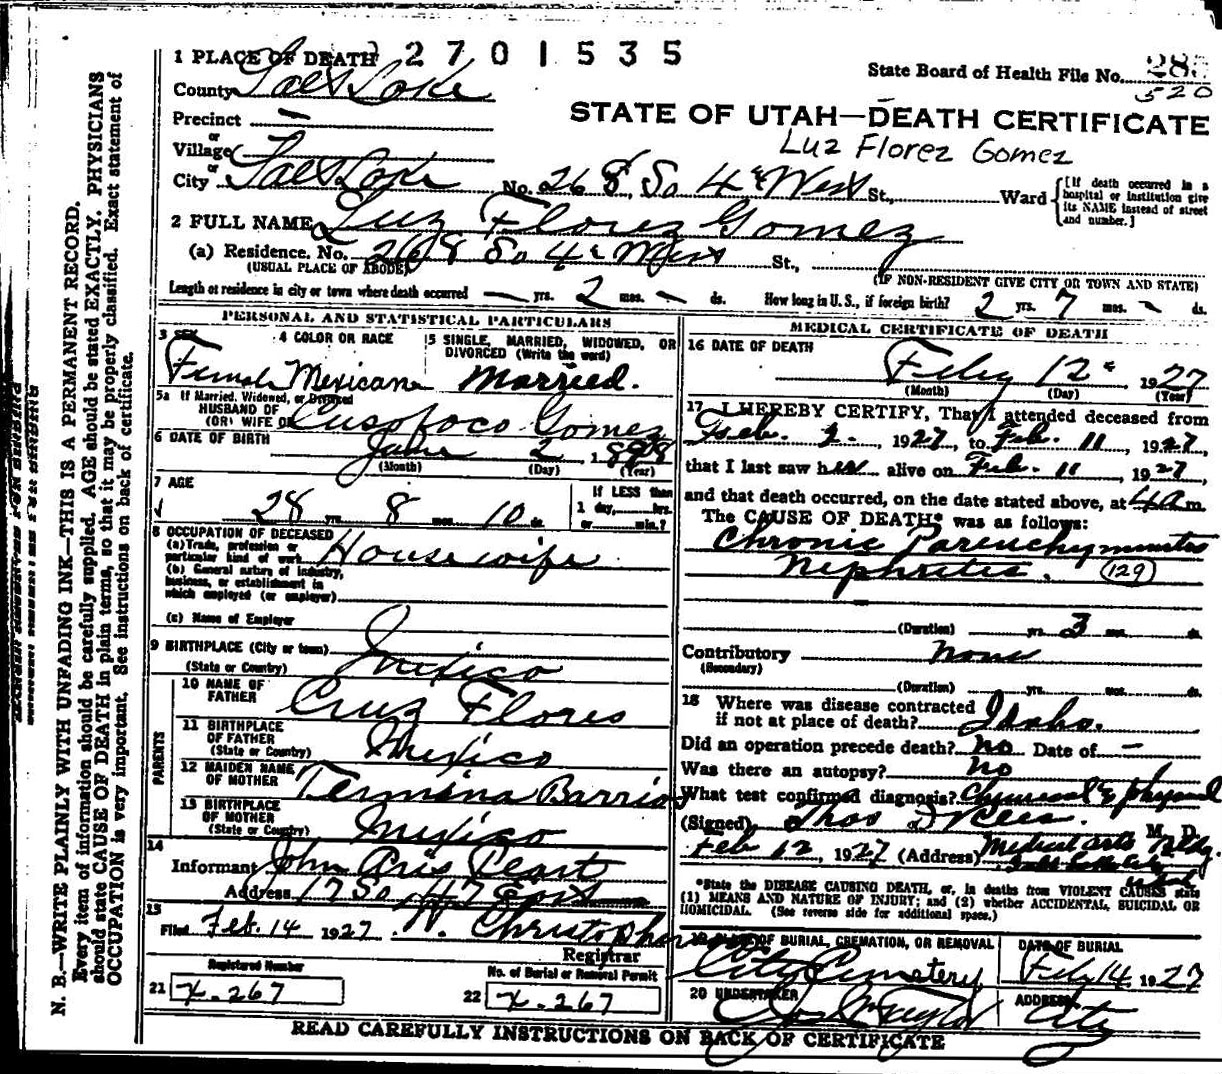 2701535
State Board of Health File No. 285
520
1 PLACE OF DEATH
County Salt Lake
STATE OF UTAH—DEATH CERTIFICATE
Luz Florez Gomez
Precinct —
or
Village
or
City Salt Lake No. 268 So 4th West St., Ward
[If death occurred in a hospital or institution give its NAME instead of street and number.]
2 FULL NAME Luz Florez Gomez
(a) Residence. No. 268 So 4th West St.,
(USUAL PLACE OF ABODE)
(IF NON-RESIDENT GIVE CITY OR TOWN AND STATE)
Length of residence in city or town where death occurred — yrs. 2 mos. — ds. How long in U. S., if foreign birth? 2 yrs. 7 mos. — ds.
PERSONAL AND STATISTICAL PARTICULARS
3 SEX
Female
4 COLOR OR RACE
Mexican
5 SINGLE, MARRIED, WIDOWED, OR DIVORCED (Write the word)
Married.
5a If Married, Widowed, or Divorced
HUSBAND OF
(OR) WIFE OF Gomez
6 DATE OF BIRTH
2
(Month) (Day) (Year)
7 AGE
28 yrs. 8 mos. 10 ds.
If LESS than
1 day, hrs.
or min.?
8 OCCUPATION OF DECEASED
(a) Trade, profession or particular kind of work Housewife
(b) General nature of industry, business, or establishment in which employed (or employer)
(c) Name of Employer
9 BIRTHPLACE (City or town)
(State or Country) Mexico
PARENTS
10 NAME OF FATHER Cruz Flores
11 BIRTHPLACE OF FATHER (State or Country) Mexico
12 MAIDEN NAME OF MOTHER Termina Barrios
13 BIRTHPLACE OF MOTHER (State or Country) Mexico
14
Informant John Peart
Address 17 So
15
Filed Feb. 14 1927 W. Christopherson
Registrar
Registered Number
21 X.267
No. of Burial or Removal Permit
22 X.267
MEDICAL CERTIFICATE OF DEATH
16 DATE OF DEATH
Feby 12" 1927
(Month) (Day) (Year)
17 I HEREBY CERTIFY, That I attended deceased from
Feb. 2, 1927, to Feb. 11, 1927,
that I last saw her alive on Feb. 11 1927,
and that death occurred, on the date stated above, at 4 a m.
The CAUSE OF DEATH* was as follows:
Chronic Parenchymintos
Nephritis. (129)
(Duration) yrs. 3 mos. ds.
Contributory none
(Secondary)
(Duration) yrs. mos. ds.
18 Where was disease contracted
if not at place of death? Idaho.
Did an operation precede death? no Date of —
Was there an autopsy? no
What test confirmed diagnosis? Chemical & physical
(Signed) Thos M. D.
Feb 12, 1927 (Address) Medical Arts Bldg.
Salt Lake City
*State the DISEASE CAUSING DEATH, or, in deaths from VIOLENT CAUSES state
(1) MEANS AND NATURE OF INJURY; and (2) whether ACCIDENTAL, SUICIDAL OR
HOMICIDAL. (See reverse side for additional space.)
19 PLACE OF BURIAL, CREMATION, OR REMOVAL
City Cemetery
DATE OF BURIAL
Feby 14, 1927
20 UNDERTAKER
Taylor
ADDRESS
City
READ CAREFULLY INSTRUCTIONS ON BACK OF CERTIFICATE
N. B.—WRITE PLAINLY WITH UNFADING INK—THIS IS A PERMANENT RECORD.
Every item of information should be carefully supplied. AGE should be stated EXACTLY. PHYSICIANS
should state CAUSE OF DEATH in plain terms, so that it may be properly classified. Exact statement of
OCCUPATION is very important. See instructions on back of certificate.